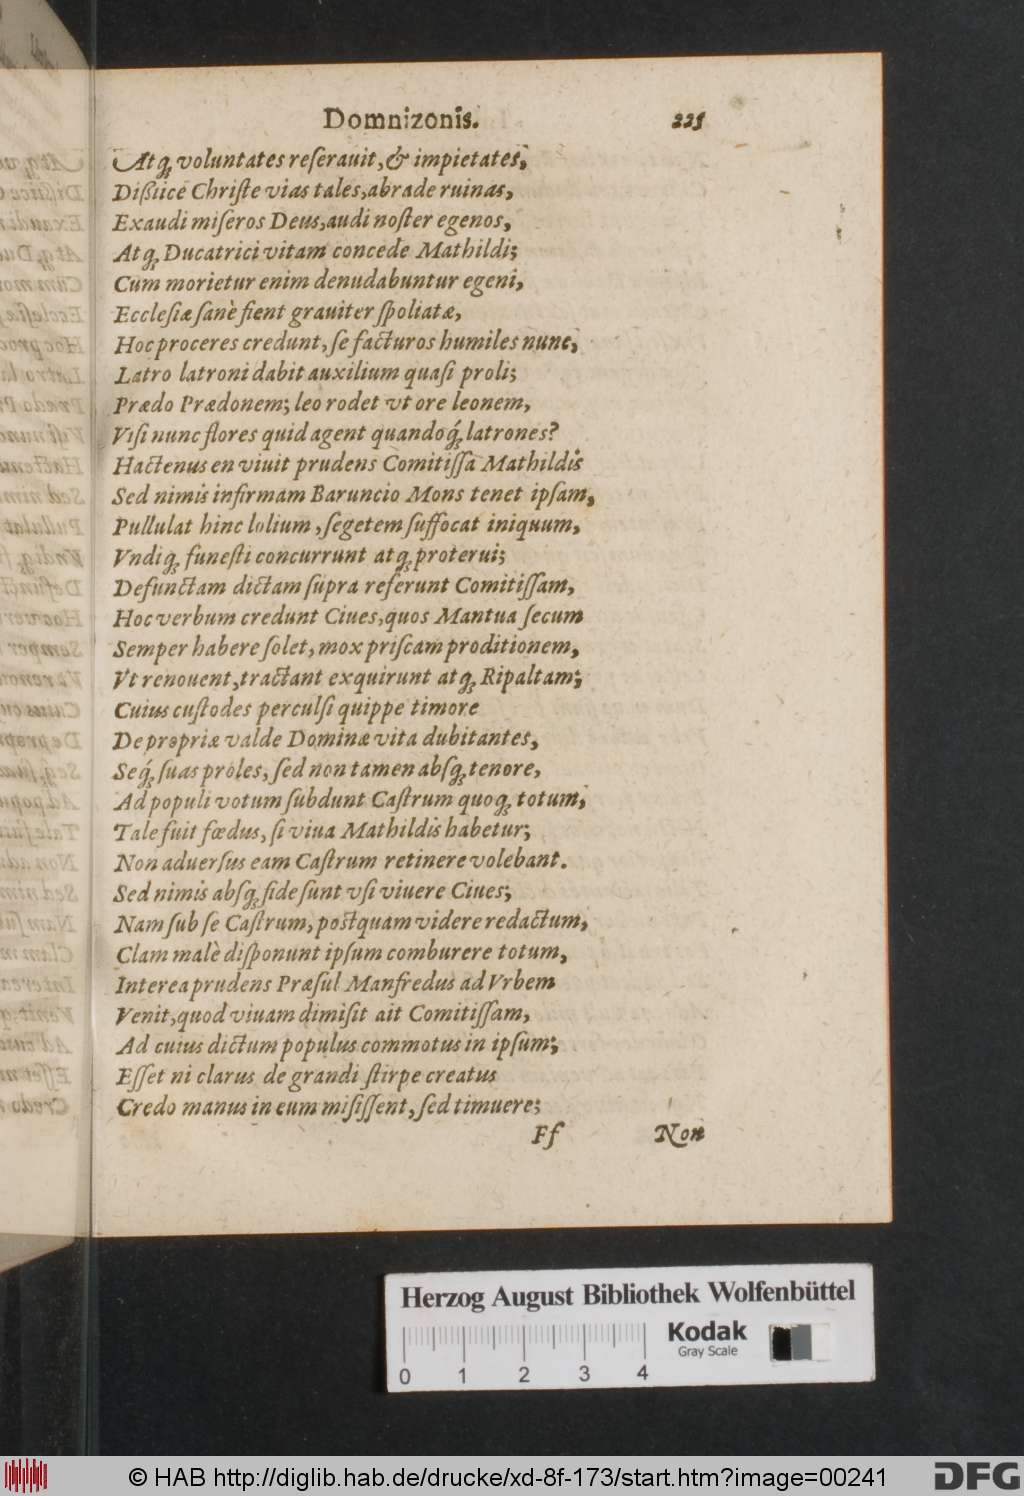 Domnizonis. 225
Atq́ꝫ voluntates reſerauit, & impietates,
Dißiice Chriſte vias tales, abrade ruinas,
Exaudi miſeros Deus, audi noſter egenos,
Atqꝫ Ducatrici vitam concede Mathildi;
Cum morietur enim denudabuntur egeni,
Eccleſiæ ſanè fient grauiter ſpoliatæ,
Hoc proceres credunt, ſe facturos humiles nunc,
Latro latroni dabit auxilium quaſi proli;
Prædo Prædonem; leo rodet vt ore leonem,
Viſi nunc flores quid agent quandoq́ꝫ latrones?
Hactenus en viuit prudens Comitiſſa Mathildis
Sed nimis infirmam Baruncio Mons tenet ipſam,
Pullulat hinc lolium, ſegetem ſuffocat iniquum,
Vndiqꝫ funeſti concurrunt atqꝫ proterui;
Defunctam dictam ſupra referunt Comitiſſam,
Hoc verbum credunt Ciues, quos Mantua ſecum
Semper habere ſolet, mox priſcam proditionem,
Vt renouent, tractant exquirunt atqꝫ Ripaltam;
Cuius cuſtodes perculſi quippe timore
De propriæ valde Dominæ vita dubitantes,
Seq́ꝫ ſuas proles, ſed non tamen abſqꝫ tenore,
Ad populi votum ſubdunt Caſtrum quoqꝫ totum,
Tale fuit fœdus, ſi viua Mathildis habetur;
Non aduerſus eam Caſtrum retinere volebant.
Sed nimis abſqꝫ fide ſunt vſi viuere Ciues;
Nam ſub ſe Caſtrum, postquam videre redactum,
Clam malè diſponunt ipſum comburere totum,
Interea prudens Præſul Manfredus ad Vrbem
Venit, quod viuam dimiſit ait Comitiſſam,
Ad cuius dictum populus commotus in ipſum;
Eſſet ni clarus de grandi ſtirpe creatus
Credo manus in eum miſiſſent, ſed timuere;
Ff Non
Herzog August Bibliothek Wolfenbüttel
Kodak
Gray Scale
0 1 2 3 4
© HAB http://diglib.hab.de/drucke/xd-8f-173/start.htm?image=00241
DFG